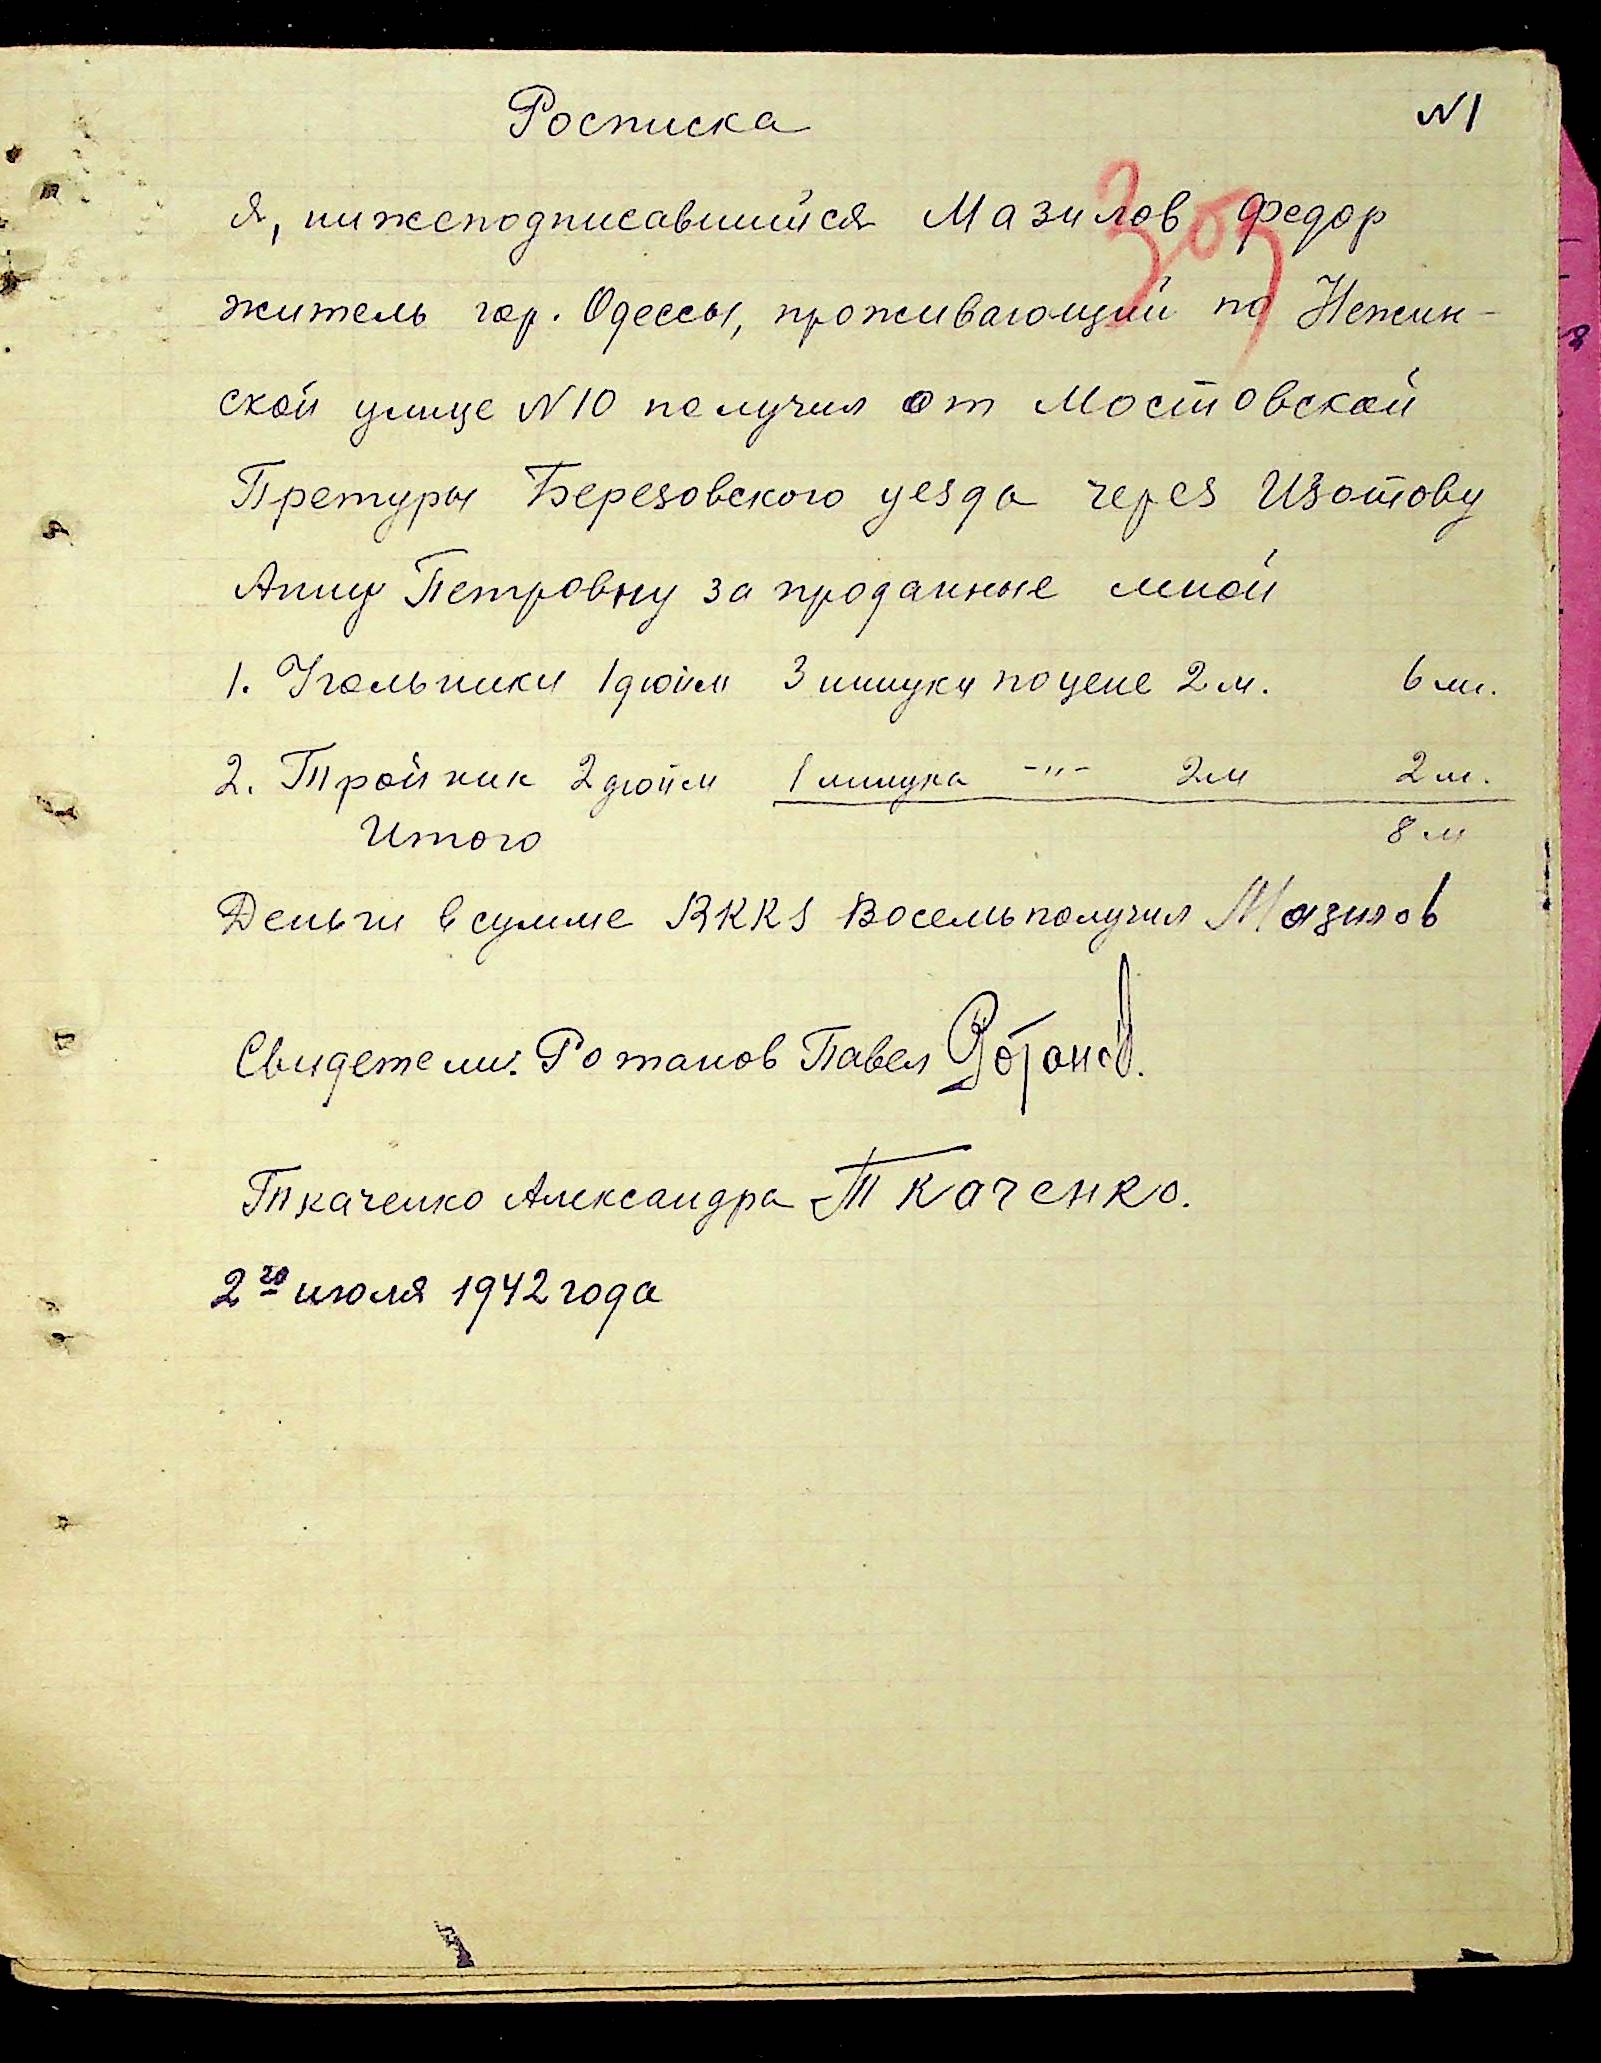 Росписка
N1
309
Я, нижеподписавшийся Мазилов Федор
житель гор. Одессы, проживающий по Нежин-
ской улице N10 получил от Мостовской
Претуры Березовского уезда через Изотову
Анну Петровну за проданные мной
1. Угольники 1 дюйм 3 штуки по цене 2 м. 6 м.
2. Тройник 2 дюйм 1 штука -"- 2 м 2 м.
Итого 8 м
Деньги в сумме RKKS Восемь получил Мазилов
Свидетели: Ротанов Павел Ротанов.
Ткаченко Александра Ткаченко.
2го июля 1942 года